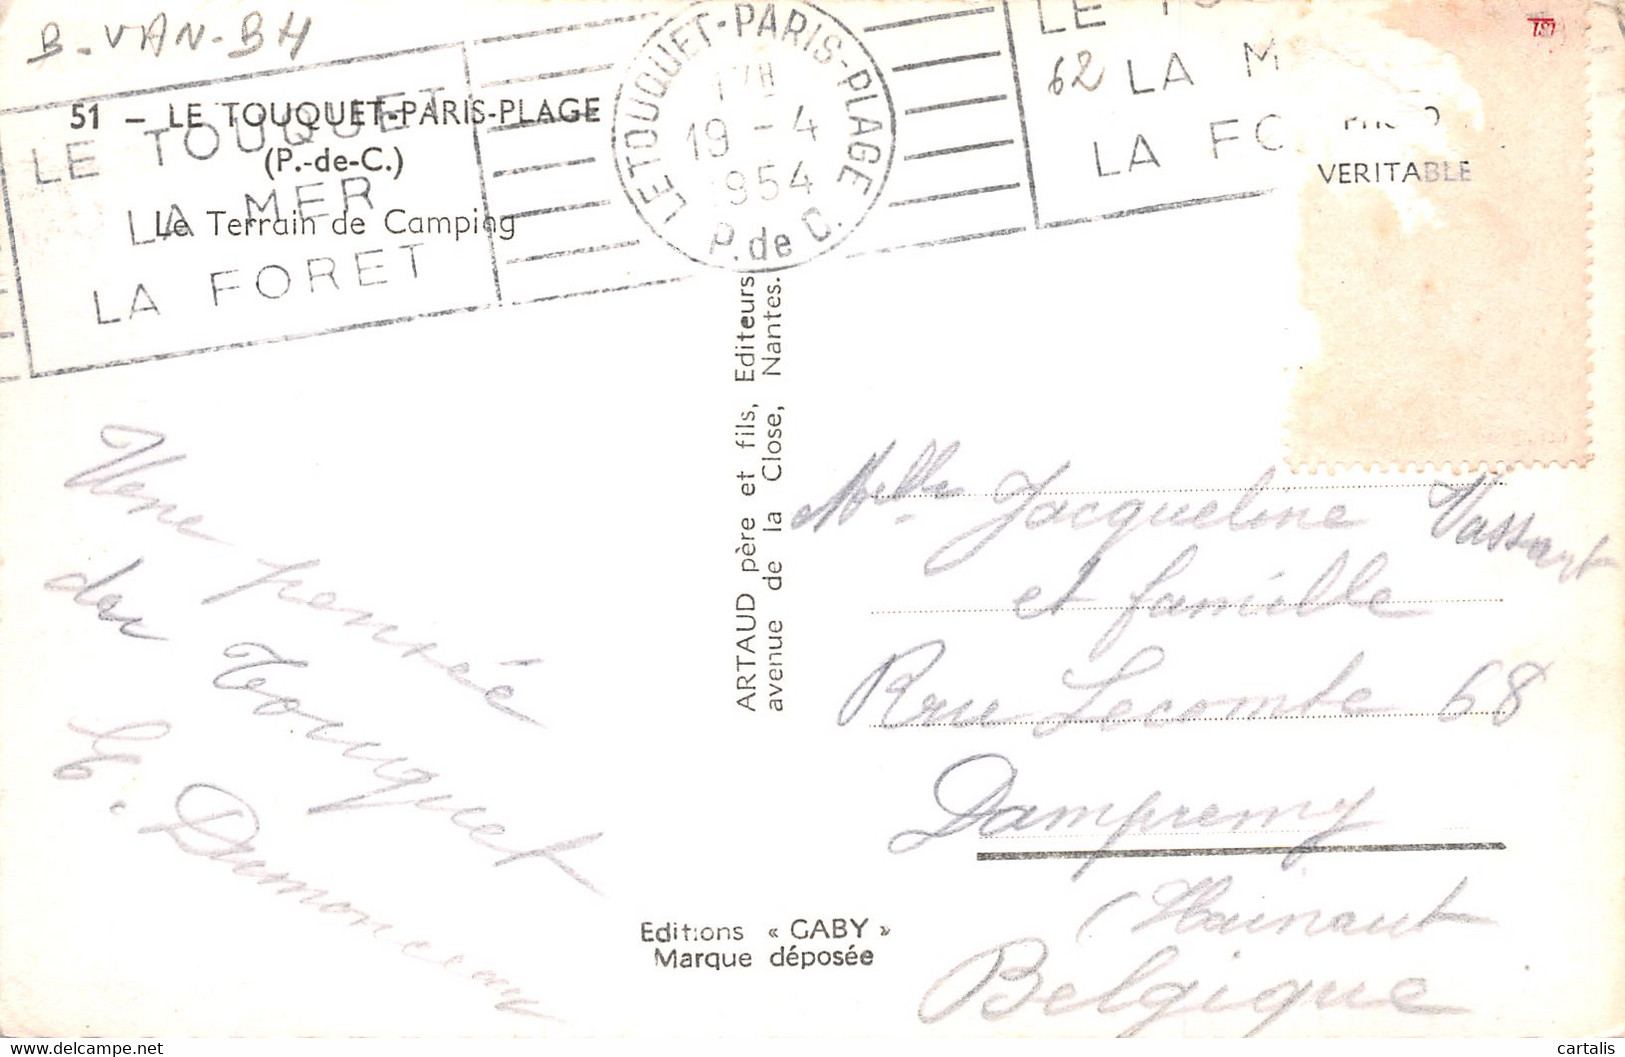 B-VAN-BH
51 - LE TOUQUET-PARIS-PLAGE
(P.-de-C.)
Le Terrain de Camping
LE TOUQUET
LA MER
LA FORET
LE TOUQUET-PARIS-PLAGE
17H
19-4
1954
P. de C.
LE
62
LA M
LA FO
PHOTO
VERITABLE
ARTAUD père et fils, Editeurs
avenue de la Close, Nantes.
Une pensée
du Touquet
E. Dumonceau
Melle Jacqueline Vassart
et famille
Rue Lecomte 68
Dampremy
(Hainaut
Belgique
Editions « GABY »
Marque déposée
cartalis